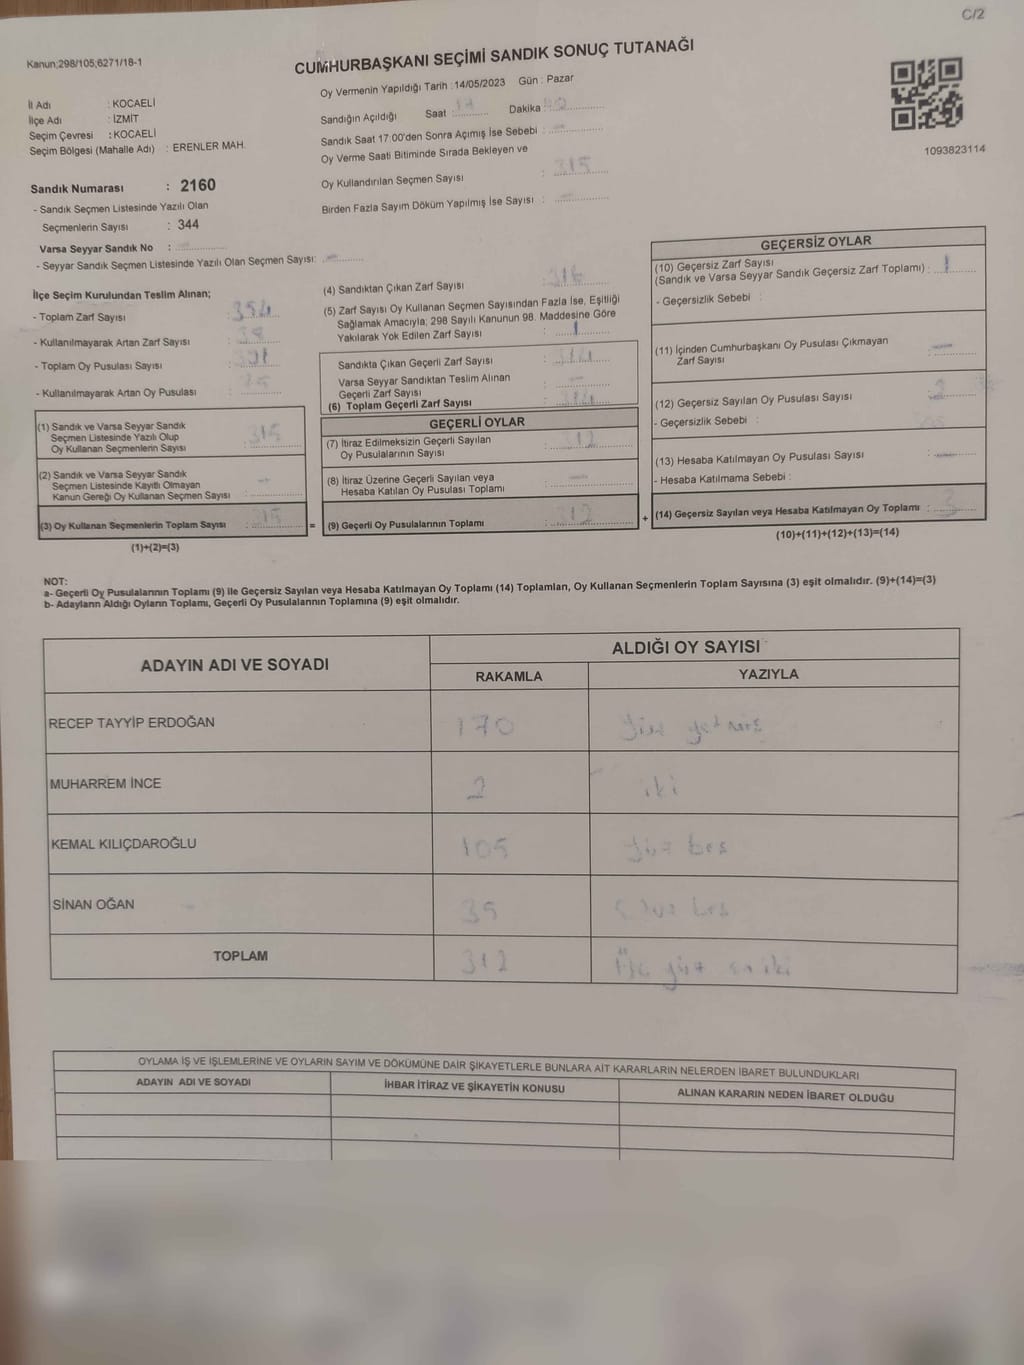 C/2
Kanun:298/105;6271/18-1
CUMHURBAŞKANI SEÇİMİ SANDIK SONUÇ TUTANAĞI
Oy Vermenin Yapıldığı Tarih :14/05/2023 Gün : Pazar
İl Adı : KOCAELİ
İlçe Adı : İZMİT
Seçim Çevresi : KOCAELİ
Seçim Bölgesi (Mahalle Adı) : ERENLER MAH.
Sandığın Açıldığı Saat 17 Dakika
Sandık Saat 17:00'den Sonra Açımış İse Sebebi : -
Oy Verme Saati Bitiminde Sırada Bekleyen ve
Oy Kullandırılan Seçmen Sayısı : 315
Birden Fazla Sayım Döküm Yapılmış İse Sayısı : -
1093823114
Sandık Numarası : 2160
- Sandık Seçmen Listesinde Yazılı Olan
Seçmenlerin Sayısı : 344
Varsa Seyyar Sandık No : -
- Seyyar Sandık Seçmen Listesinde Yazılı Olan Seçmen Sayısı: -
İlçe Seçim Kurulundan Teslim Alınan;
- Toplam Zarf Sayısı : 354
- Kullanılmayarak Artan Zarf Sayısı :
- Toplam Oy Pusulası Sayısı :
- Kullanılmayarak Artan Oy Pusulası :
(1) Sandık ve Varsa Seyyar Sandık
Seçmen Listesinde Yazılı Olup
Oy Kullanan Seçmenlerin Sayısı : 315
(2) Sandık ve Varsa Seyyar Sandık
Seçmen Listesinde Kayıtlı Olmayan
Kanun Gereği Oy Kullanan Seçmen Sayısı : -
(3) Oy Kullanan Seçmenlerin Toplam Sayısı : 315
(1)+(2)=(3)
=
(4) Sandıktan Çıkan Zarf Sayısı : 316
(5) Zarf Sayısı Oy Kullanan Seçmen Sayısından Fazla İse, Eşitliği
Sağlamak Amacıyla; 298 Sayılı Kanunun 98. Maddesine Göre
Yakılarak Yok Edilen Zarf Sayısı : 1
Sandıkta Çıkan Geçerli Zarf Sayısı : 314
Varsa Seyyar Sandıktan Teslim Alınan
Geçerli Zarf Sayısı : -
(6) Toplam Geçerli Zarf Sayısı : 314
GEÇERLİ OYLAR
(7) İtiraz Edilmeksizin Geçerli Sayılan
Oy Pusulalarının Sayısı : 312
(8) İtiraz Üzerine Geçerli Sayılan veya
Hesaba Katılan Oy Pusulası Toplamı : -
(9) Geçerli Oy Pusulalarının Toplamı : 312
+
GEÇERSİZ OYLAR
(10) Geçersiz Zarf Sayısı
(Sandık ve Varsa Seyyar Sandık Geçersiz Zarf Toplamı) : 1
- Geçersizlik Sebebi :
(11) İçinden Cumhurbaşkanı Oy Pusulası Çıkmayan
Zarf Sayısı : -
(12) Geçersiz Sayılan Oy Pusulası Sayısı : 2
- Geçersizlik Sebebi :
(13) Hesaba Katılmayan Oy Pusulası Sayısı : -
- Hesaba Katılmama Sebebi :
(14) Geçersiz Sayılan veya Hesaba Katılmayan Oy Toplamı : 3
(10)+(11)+(12)+(13)=(14)
NOT:
a- Geçerli Oy Pusulalarının Toplamı (9) ile Geçersiz Sayılan veya Hesaba Katılmayan Oy Toplamı (14) Toplamları, Oy Kullanan Seçmenlerin Toplam Sayısına (3) eşit olmalıdır. (9)+(14)=(3)
b- Adayların Aldığı Oyların Toplamı, Geçerli Oy Pusulalarının Toplamına (9) eşit olmalıdır.
ADAYIN ADI VE SOYADI ALDIĞI OY SAYISI
RAKAMLA YAZIYLA
RECEP TAYYİP ERDOĞAN 170 Yüz yetmiş
MUHARREM İNCE 2 iki
KEMAL KILIÇDAROĞLU 105 Yüz beş
SİNAN OĞAN 35 beş
TOPLAM 312 Üç yüz on iki
OYLAMA İŞ VE İŞLEMLERİNE VE OYLARIN SAYIM VE DÖKÜMÜNE DAİR ŞİKAYETLERLE BUNLARA AİT KARARLARIN NELERDEN İBARET BULUNDUKLARI
ADAYIN ADI VE SOYADI İHBAR İTİRAZ VE ŞİKAYETİN KONUSU ALINAN KARARIN NEDEN İBARET OLDUĞU